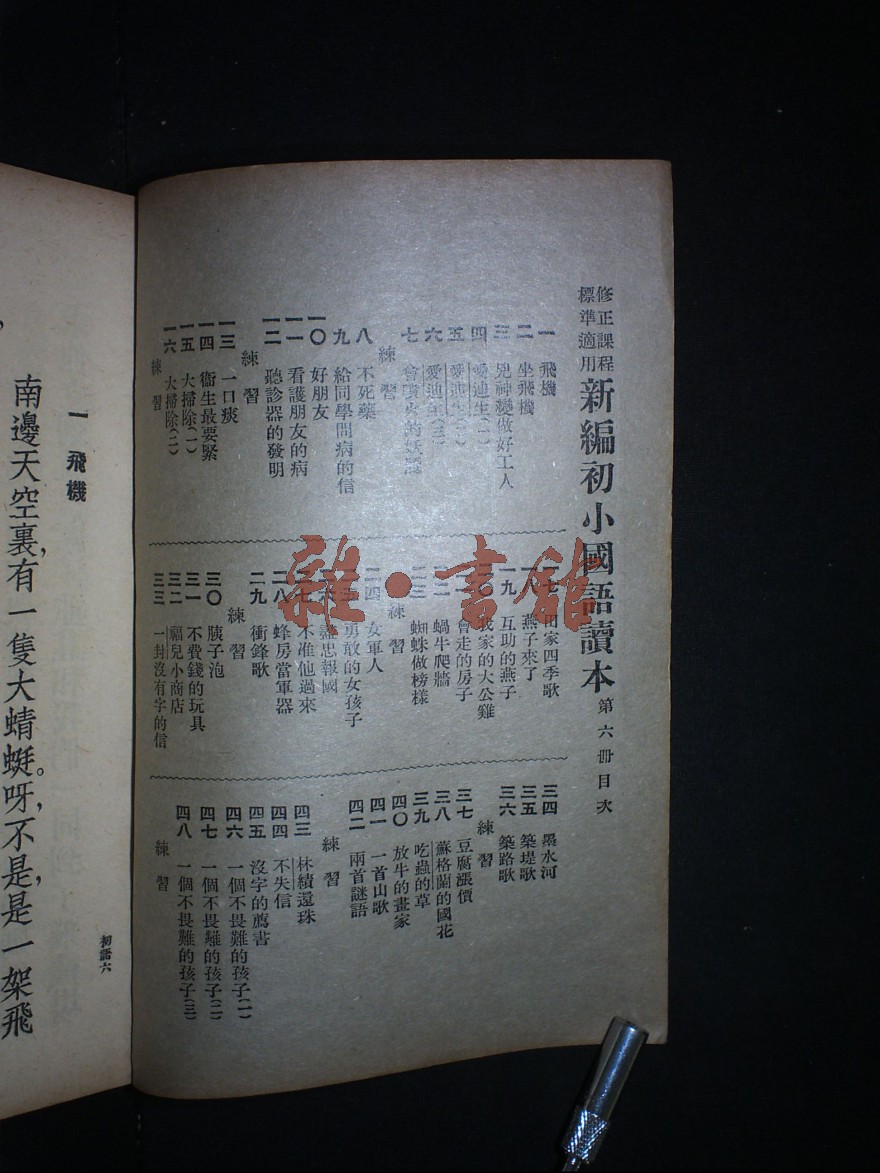 修正課程
標準適用
新編初小國語讀本 第六冊目次
一 飛機
二 坐飛機
三 兇神變做好工人
四 愛迪生(一)
五 愛迪生(二)
六 愛迪生(三)
七 會噴火的妖怪
練習
八 不死藥
九 給同學問病的信
一〇 好朋友
一一 看護朋友的病
一二 聽診器的發明
練習
一三 一口痰
一四 衞生最要緊
一五 大掃除(一)
一六 大掃除(二)
練習
一七 田家四季歌
一八 燕子來了
一九 互助的燕子
二〇 我家的大公雞
二一 會走的房子
二二 蝸牛爬牆
二三 蜘蛛做榜樣
練習
二四 女軍人
二五 勇敢的女孩子
二六 盡忠報國
二七 不准他過來
二八 蜂房當軍器
二九 衝鋒歌
練習
三〇 胰子泡
三一 不費錢的玩具
三二 福兒小商店
三三 一封沒有字的信
三四 墨水河
三五 築堤歌
三六 築路歌
練習
三七 豆腐漲價
三八 蘇格蘭的國花
三九 吃蟲的草
四〇 放牛的畫家
四一 一首山歌
四二 兩首謎語
練習
四三 林績還珠
四四 不失信
四五 沒字的薦書
四六 一個不畏難的孩子(一)
四七 一個不畏難的孩子(二)
四八 一個不畏難的孩子(三)
練習
雜·書館
一 飛機
南邊天空裏,有一隻大蜻蜓。呀,不是,是一架飛
初語六